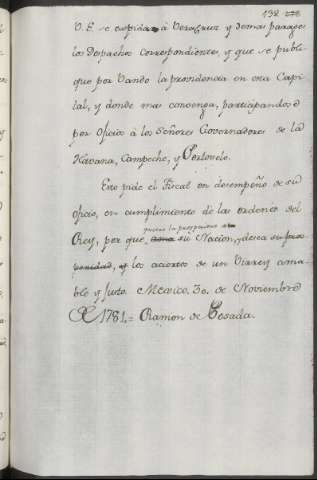 132 278
V. E. se expidan à Veracruz y demas parages
los Despachos correspondientes, y que se publi-
que por Vando la providencia en esta Capi-
tal, y donde mas convenga, participandose
por oficios à los Señores Governadores de la
Havana, Campeche, y Portovelo.
Esto pide el Fiscal en desempeño de su
oficio, en cumplimiento de las ordenes del
quiere la prosperidad de
Rey, por que ama su Nacion, y desea su pros-
peridad, y los aciertos de un Virrey ama-
ble y justo. Mexico, 30. de Noviembre
de 1781.= Ramon de Posada.